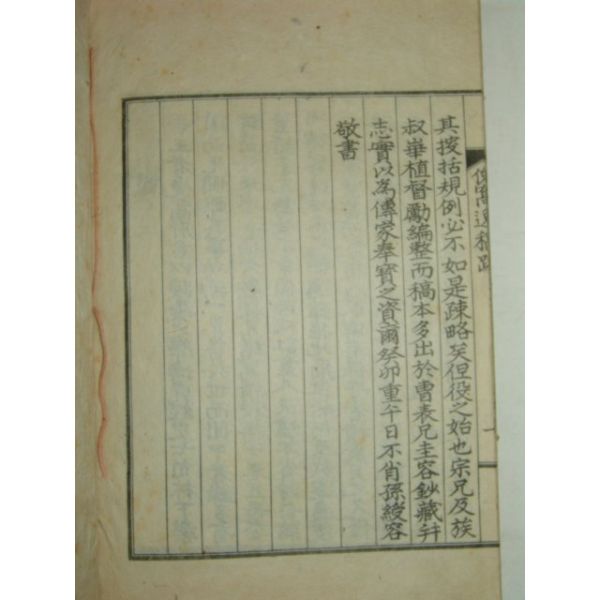 其按括規例必不如是疎略矣但役之始也宗兄及族
叔崋植督勵編整而稿本多出於曺表兄圭容鈔藏幷
志實以為傳家奉寶之資爾癸卯重午日不肖孫綬容
敬書
遺稿跋